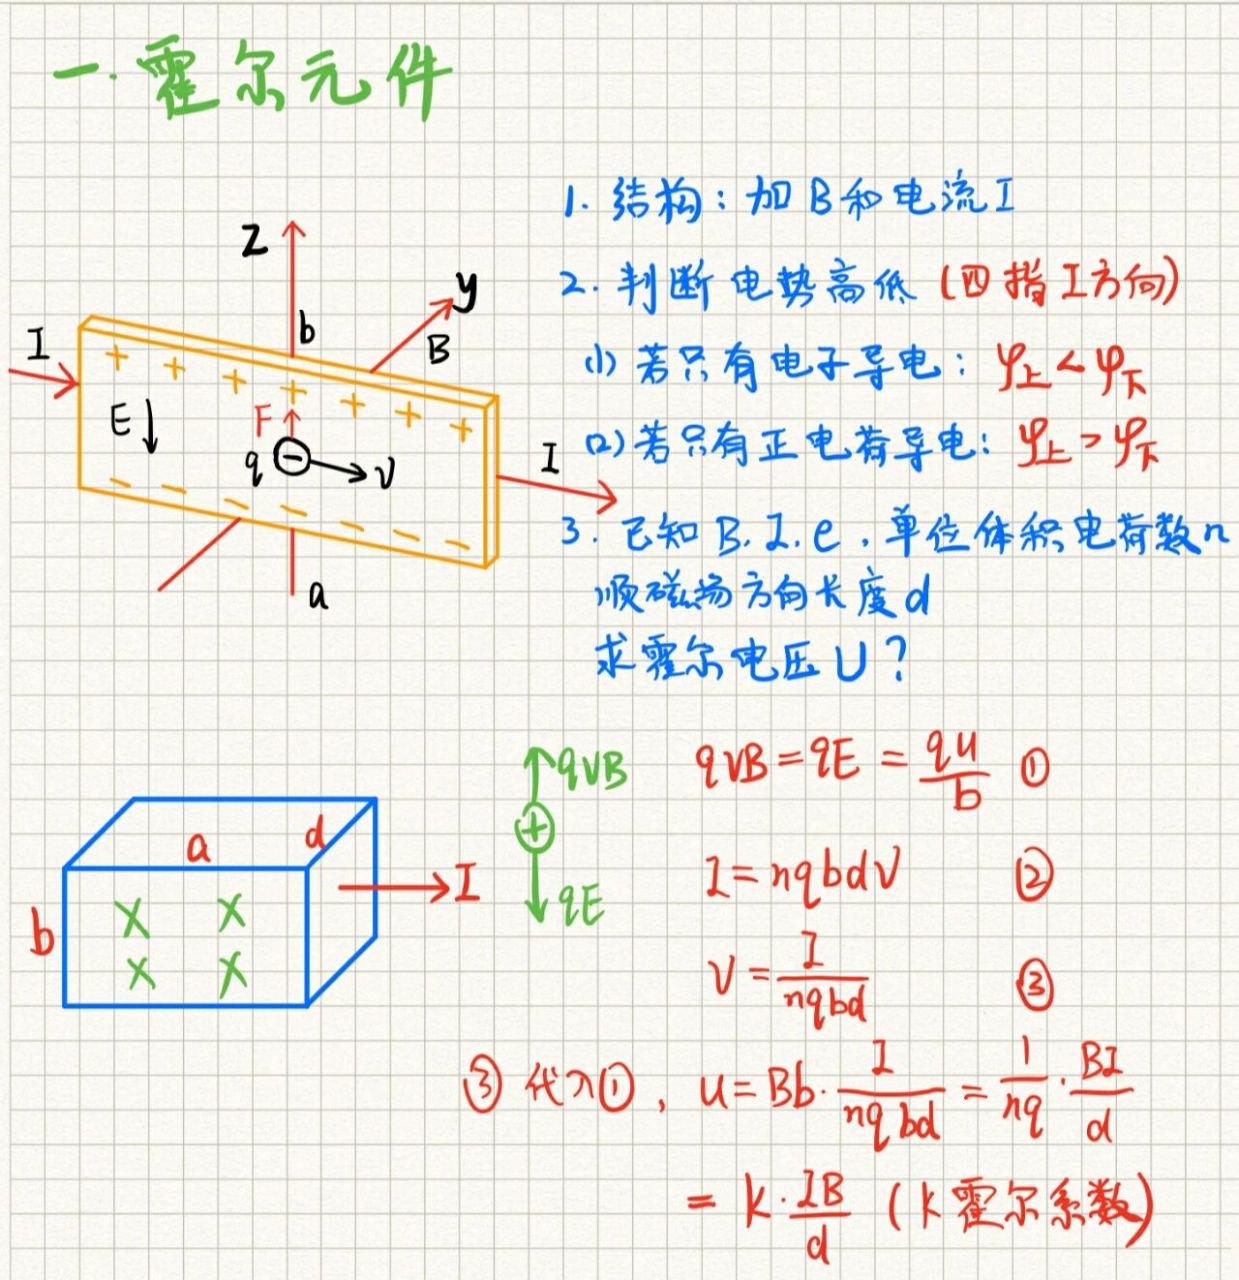 一.霍尔元件
1. 结构：加B和电流I
2. 判断电势高低（四指I方向）
(1) 若只有电子导电：φ上<φ下
(2) 若只有正电荷导电：φ上>φ下
3. 已知B.I.e.单位体积电荷数n
顺磁场方向长度d
求霍尔电压U？
Z
y
b
B
I
+ + + + + + +
E
F
q
-
v
I
- - - - - - -
a
a
d
b
I
X X
X X
qvB
+
qE
qvB=qE=qu/b ①
I=nqbdv ②
v=I/nqbd ③
③代入①，u=Bb·I/nqbd=1/nq·BI/d
=k·IB/d（k霍尔系数）